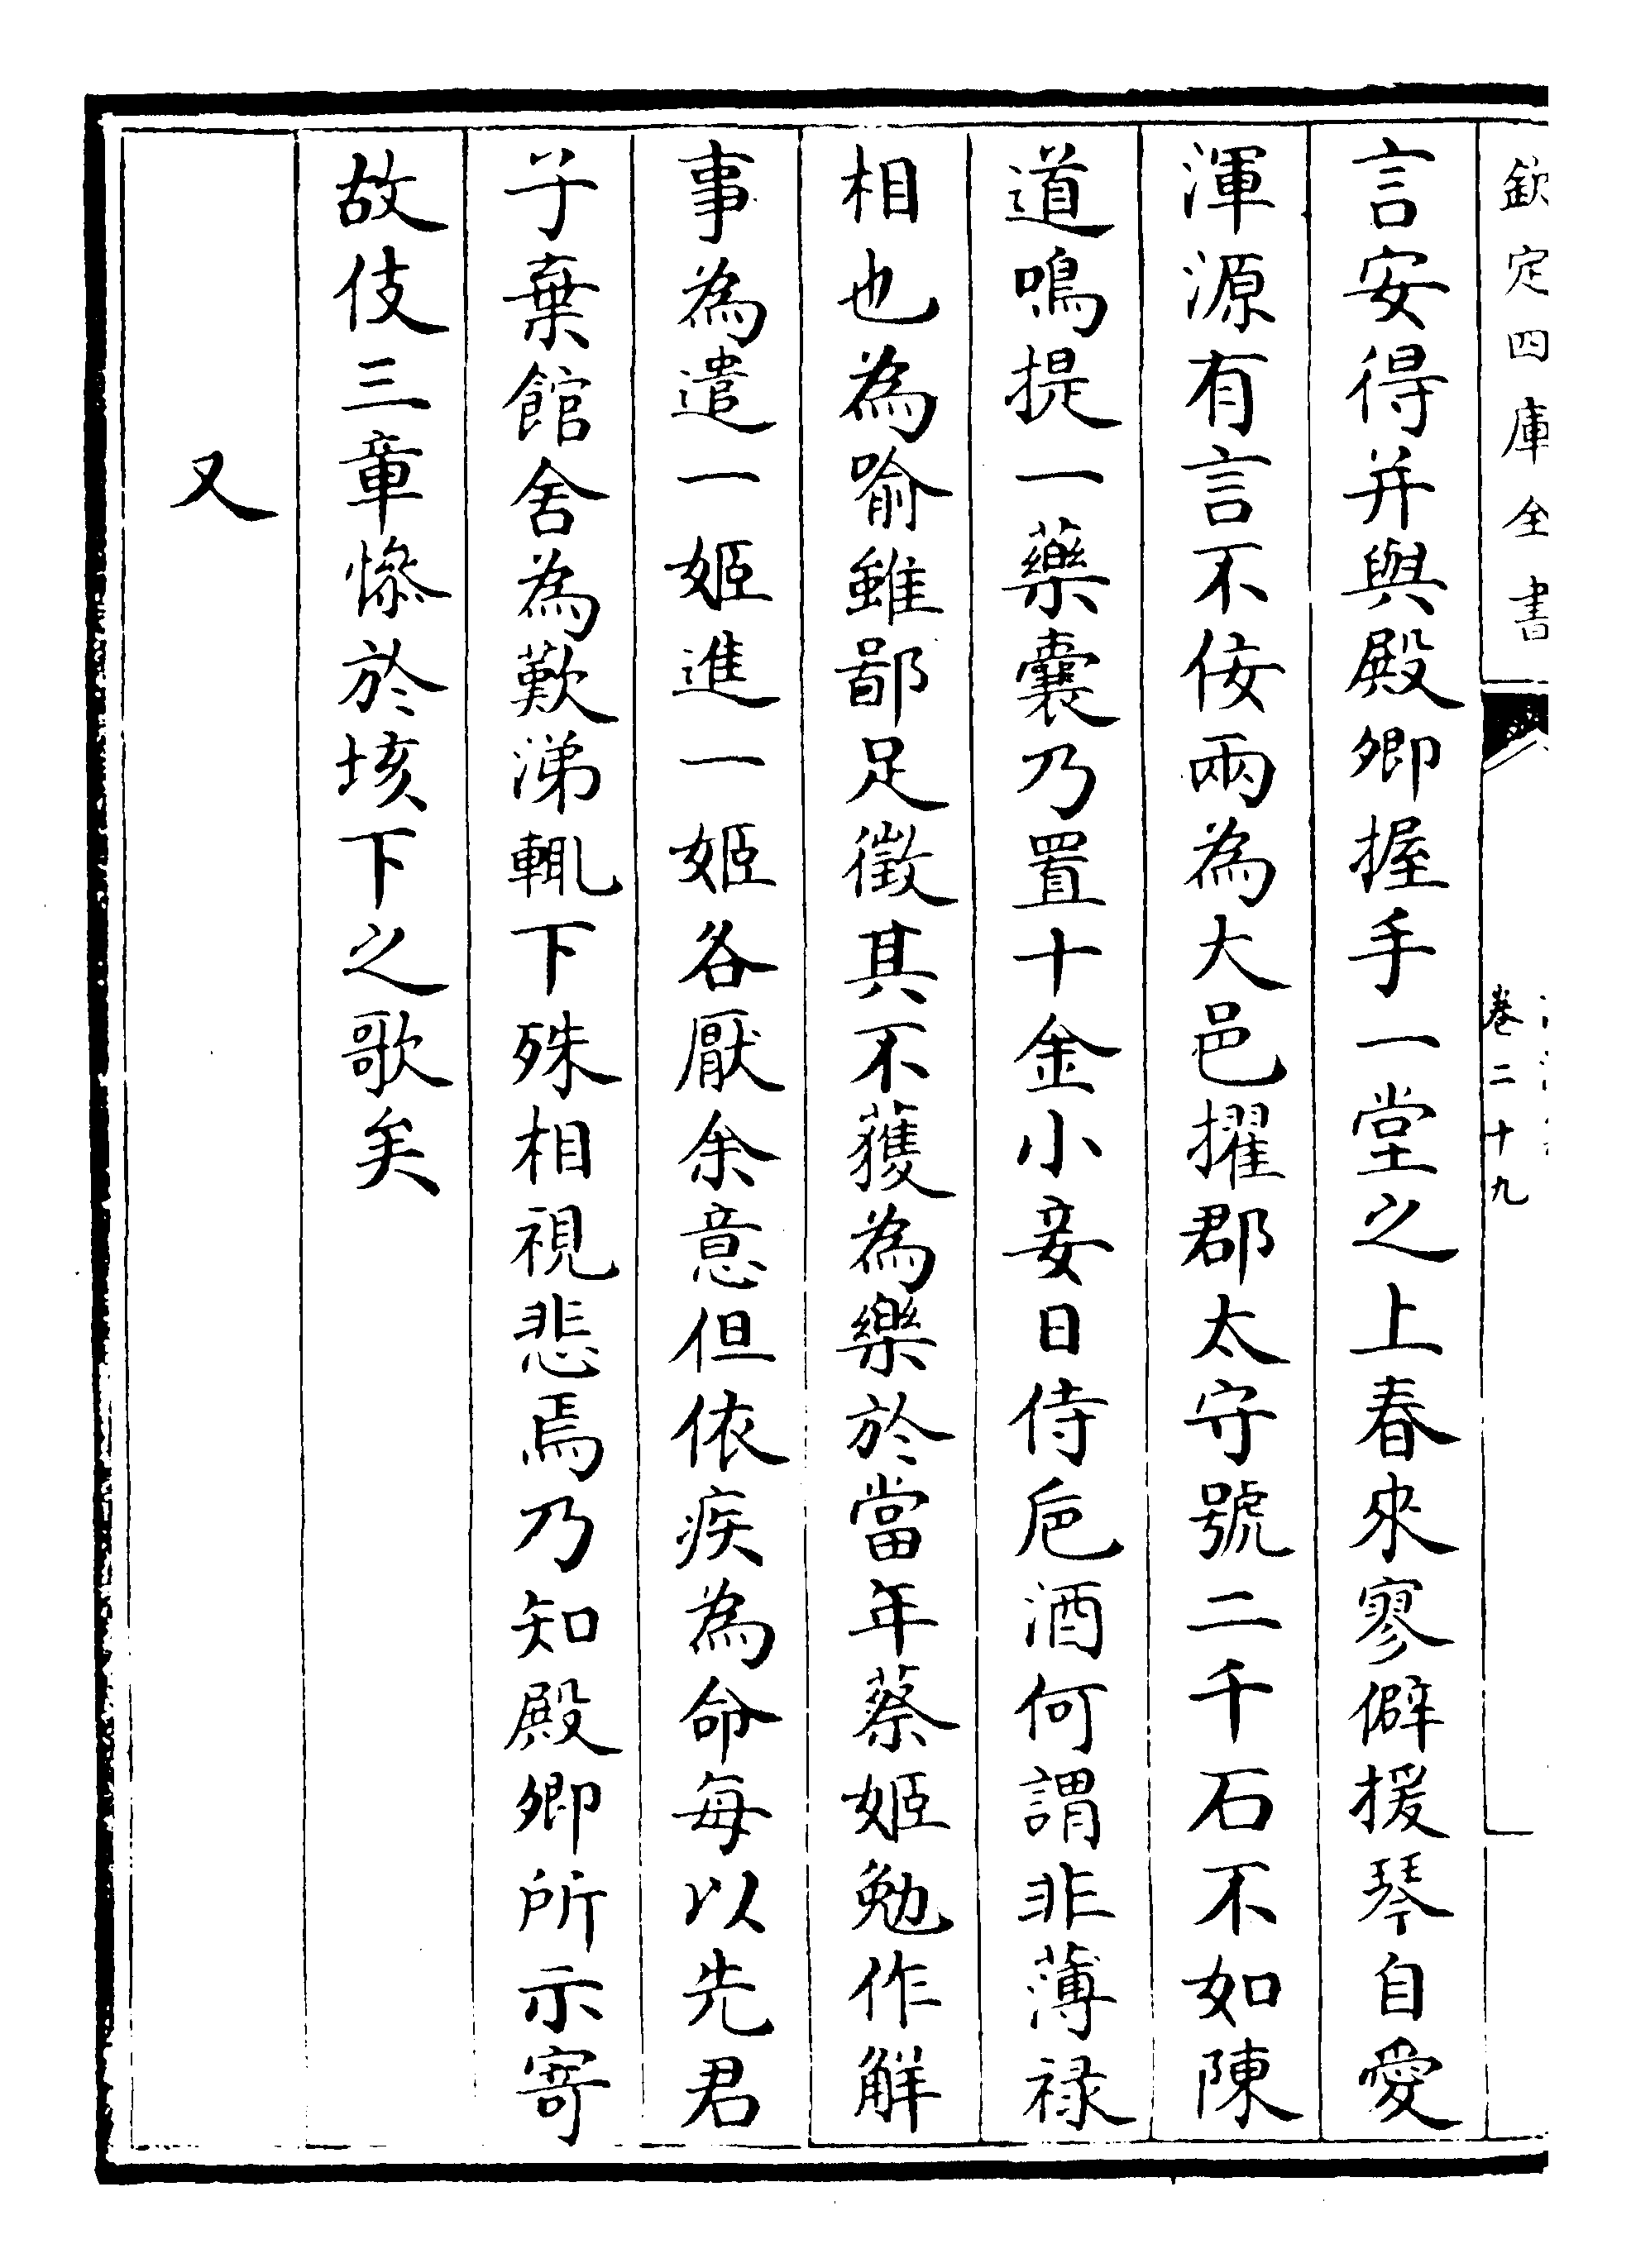 欽定四庫全書
卷二十九
言安得并與殿卿握手一堂之上春來寥僻援琴自愛
渾源有言不佞兩為大邑擢郡太守號二千石不如陳
道鳴提一藥囊乃置十金小妾日侍巵酒何謂非薄祿
相也為喻雖鄙足徵其不獲為樂於當年蔡姬勉作解
事為遣一姬進一姬各厭余意但依疾為命每以先君
子棄館舍為歎涕輒下殊相視悲焉乃知殿卿所示寄
故伎三章慘於垓下之歌矣
又